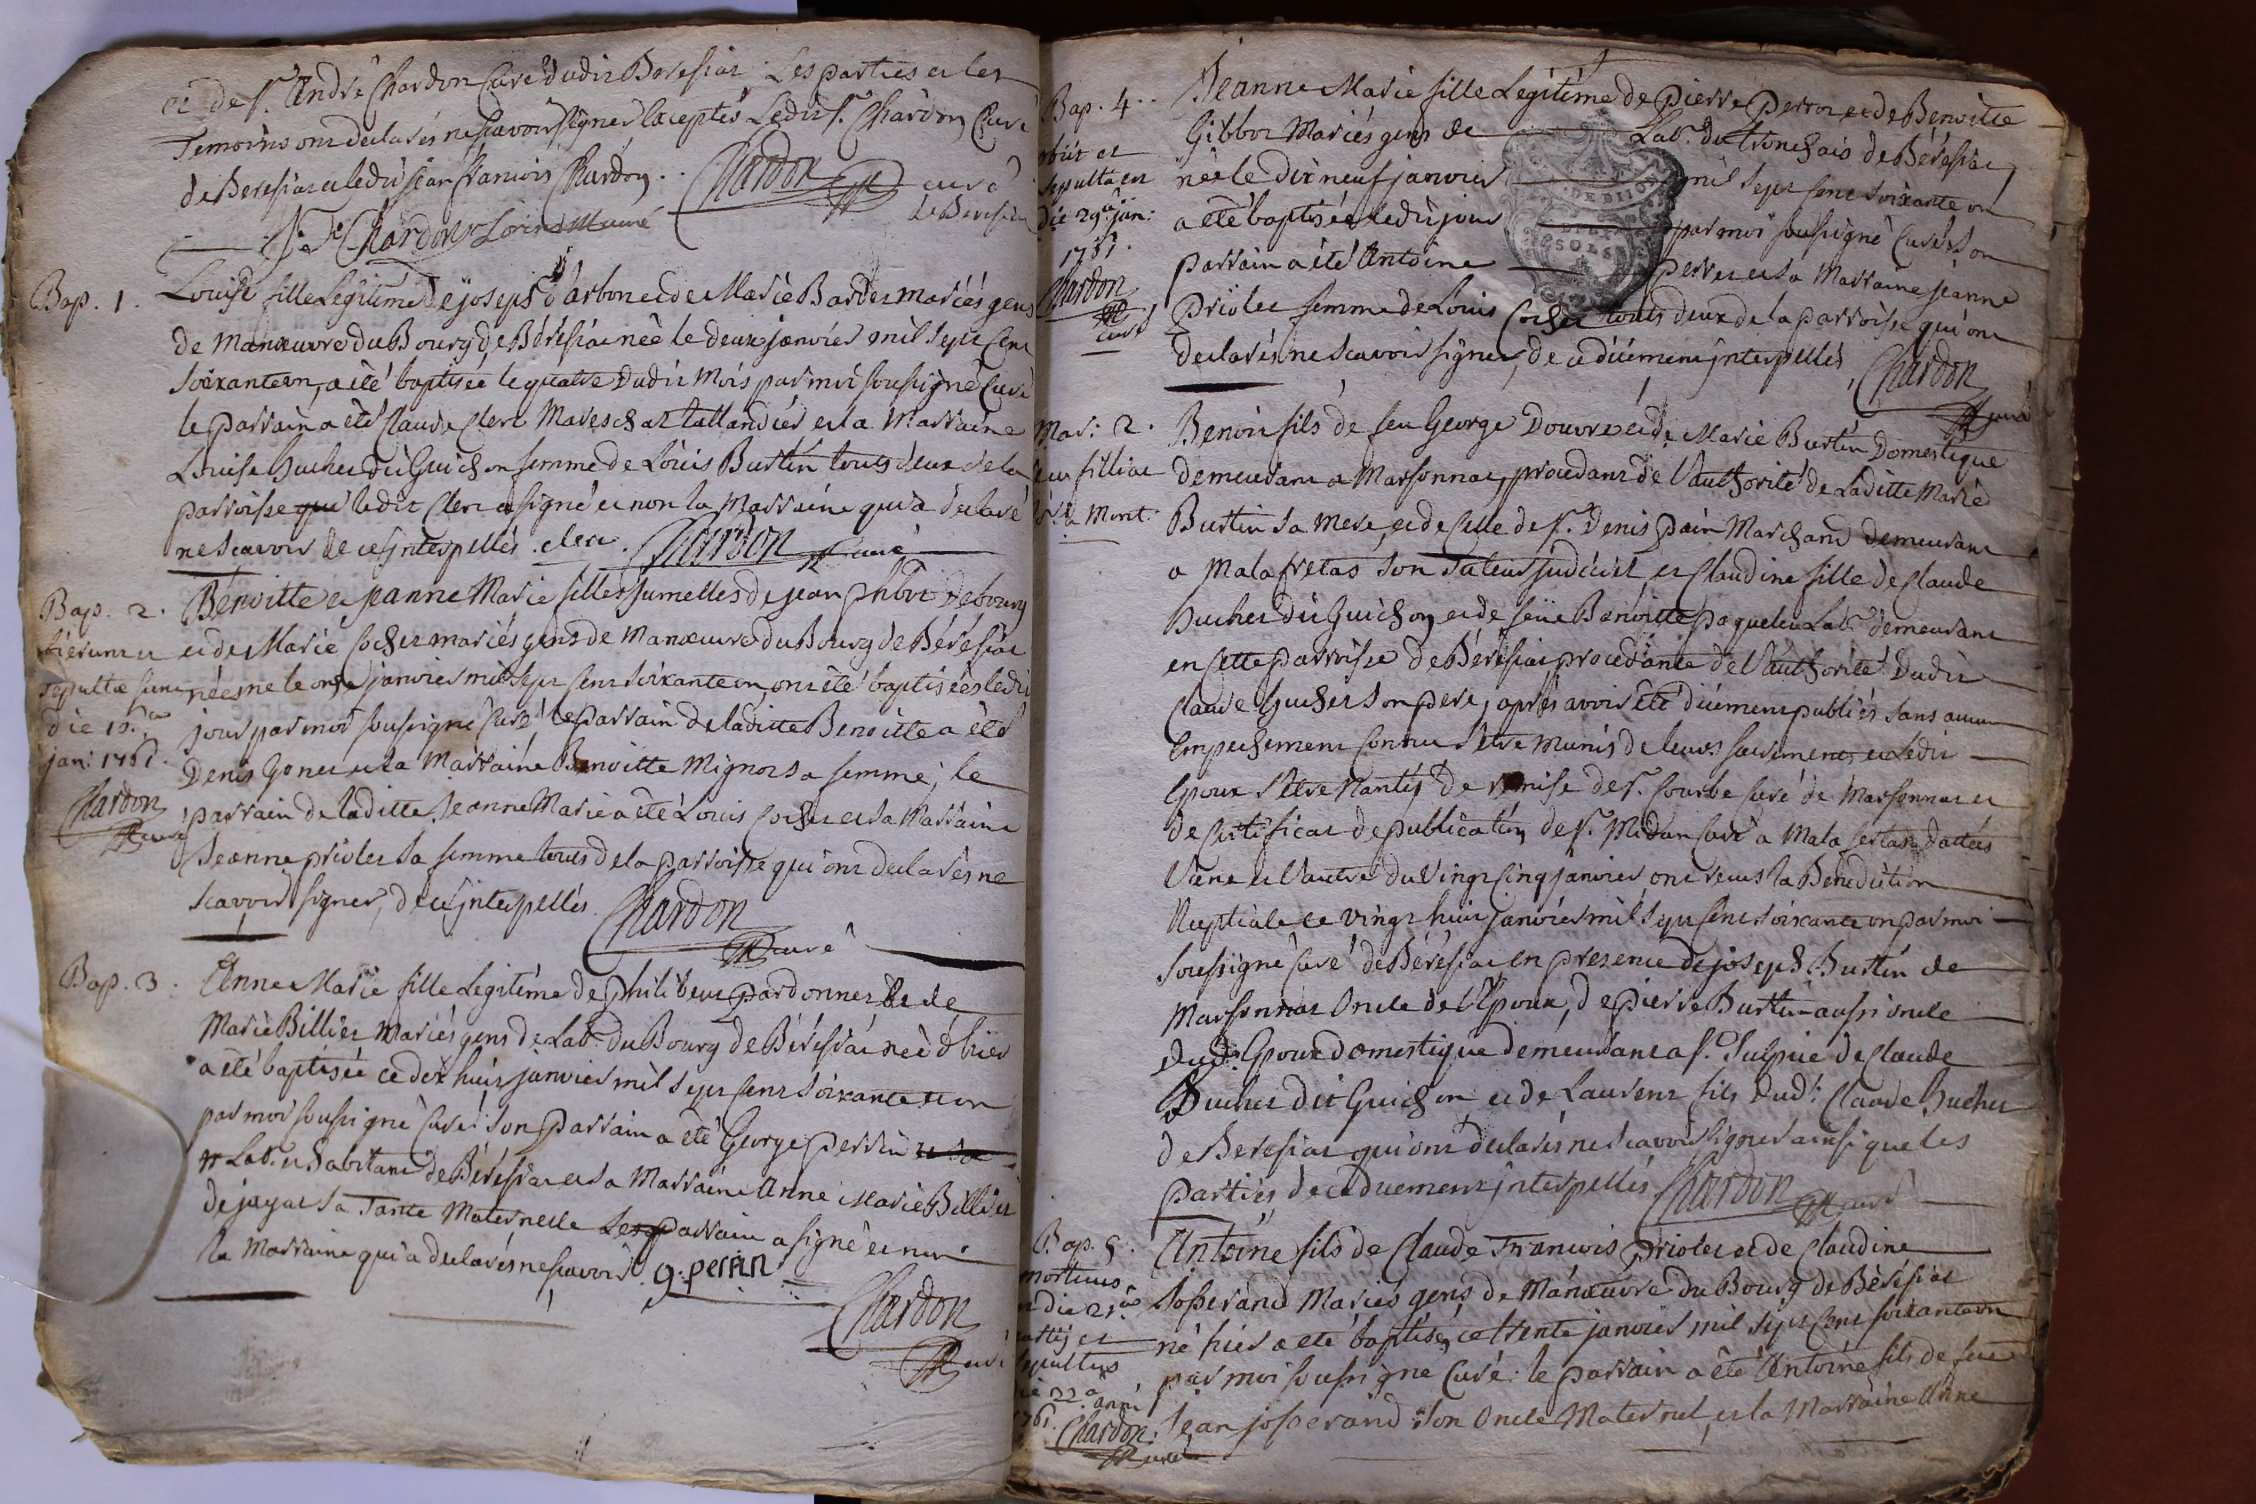 et de sr. André Chardon Curé dudit Béréfiat. Les parties et les
Temoins ont declarés ne scavoir signer Exceptés Ledit sr. Chardon Curé
de Berefiat et ledit jean françois Chardon.
Chardon curé
de Berefiat
J. f. Chardon
Bap. 1.
Louise fille Legitime de joseph d'arbon et de Marie Bardet mariés gens
de Manœuvre du Bourg de Béréfiat née le deux janvier mil sept Cent
soixante un, a été baptisée le quatre dudit Mois par moi soussigné Curé
le parrain a été Claude Clerc Mareschat tallandier et la Marraine
Louise Buchet dit Guichon femme de Louis Burtin touts deux de la
parroisse que ledit Clerc a signé et non la Marraine qui a declaré
ne scavoir de ce jnterpellés. clerc. Chardon curé
Bap. 2.
sepultæ sunt
die 15.a
jan: 1761.
Chardon
curé
Benoitte et jeanne Marie filles jumelles de jean phbert debourg
et de Marie Cochet mariés gens de Manœuvre du Bourg de Béréfiat
nées le onze janvier mil sept Cent soixante un ont été baptisées ledit
jour par moi soussigné Curé, le parrain de laditte Benoitte a été
Denis Gonet et la Marraine Benoitte Mignot sa femme; le
parrain de laditte Jeanne Marie a été Louis Cochet et sa Marraine
Jeanne priolet sa femme touts de la parroisse qui ont declarés ne
scavoir signer, de ce jnterpellés. Chardon
curé
Bap. 3.
Anne Marie fille Legitime de philibert pardonnet et de
Marie Billiet Mariés gens de Labr. du Bourg de Béréfiat née d'hier
a été baptisée ce dix huit janvier mil sept Cent soixante et un
par moi soussigné Curé: son parrain a été George perrin et sa
Labr. et habitant de Béréfiat et sa Marraine Anne Marie Billiet
de jayat sa Tante Maternelle Les parrain a signé et non
la Marraine qui a declarés ne scavoir. g. perrin
Chardon
curé
Bap. 4.
obiit et
sepulta est
die 29.a jan:
1761.
Chardon
curé
Jeanne Marie fille Legitime de pierre perret et de Benoitte
Gibbot Mariés gens de Labr. du tronchais de Béréfiat
née le dix neuf janvier mil sept Cent soixante un
a été baptisée ledit jour par moi soussigné Curé son
parrain a été Antoine perret et sa Marraine jeanne
priolet femme de Louis Cochet touts deux de la parroisse qui ont
declarés ne scavoir signer, de ce düement jnterpellés. Chardon
curé
Mar: 2.
Benoit fils de feu George Douvre et de Marie Burtin Domestique
demeurant a Marsonnat, procedant de l'authorité de Laditte Marie
Burtin sa mere, et de Celle de sr. Denis pain Marchand demeurant
a Malafretas son Tuteur judiciel et Claudine fille de Claude
Buchet dit Guichon et de feüe Benoitte paquelet Labr. demeurant
en Cette parroisse de Béréfiat procedante de l'authorité Dudit
Claude Buchet son pere, aprés avoir été düement publiés sans aucun
Empechement Connu s'etre Munis de leurs sacrements et Ledit
Epoux s'etre Nantis de remise de sr. Courbe Curé de Marsonnat et
de Certificat de publication de sr. Midan Curé a Malafretas dattées
l'une et l'autre du vingt Cinq janvier ont reçus la Benediction
Nuptiale ce vingt huit janvier mil sept Cent soixante un par moi
soussigné Curé de Béréfiat en presence de joseph Burtin de
Marsonnat Oncle de l'Epoux, de pierre Burtin aussi oncle
dud: Epoux domestique demeurant a st. Sulpice de Claude
Buchet dit Guichon et de Laurent fils dud: Claude Buchet
de Berefiat qui ont declarés ne scavoir signer ainsi que les
parties, de ce duement jnterpellés. Chardon curé
Bap. 5.
mortuus
die 21.a
sepultus
22.a
Chardon
curé
Antoine fils de Claude francois priolet et de Claudine
Josserand Mariés gens de Manœuvre du Bourg de Béréfiat
né hier a été baptisé, ce trente janvier mil sept Cent soixante un
par moi soussigné Curé: le parrain a été Antoine fils de feu
Jean josserand son Oncle Maternel, et la Marraine Anne